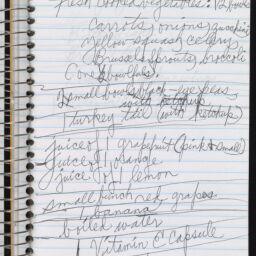 fresh cooked vegetables: 12 
carrots, onions, zucchini
yellow squash, celery,
Brussels sprouts, broccoli
(one bowlful).
2 small bowls black-eye peas,
with ketchup
1 turkey tail (with ketchup)
juice of 1 grapefruit (pink & small)
juice of 1 orange
juice of 1 lemon
small bunch red grapes
1 banana
boiled water
1 Vitamin E Capsule